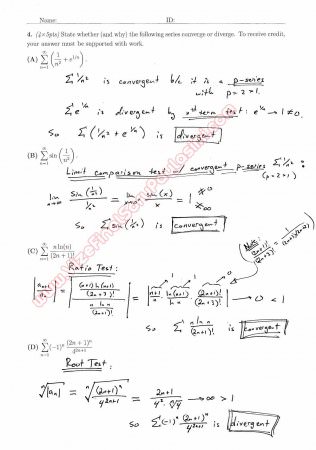 Name: ID:
4. (4×5pts) State whether (and why) the following series converge or diverge. To receive credit,
your answer must be supported with work.
(A) ∑_{n=1}^∞ (1/n² + e^{1/n}).
∑ 1/n² is convergent b/c it is a p-series
with p = 2 > 1.
∑ e^{1/n} is divergent by nth term test: e^{1/n} → 1 ≠ 0.
So ∑ (1/n² + e^{1/n}) is divergent
(B) ∑_{n=1}^∞ sin(1/n²).
Limit comparison test w/ convergent p-series ∑ 1/n² :
(p = 2 > 1)
lim_{n→∞} sin(1/n²) / 1/n² = lim_{x→0} sin(x) / x = 1 ≠ 0 ≠ ∞
So ∑ sin(1/n²) is convergent
(C) ∑_{n=1}^∞ n ln(n) / (2n + 1)!
Note: (2n+1)! / (2n+3)! = 1 / (2n+3)(2n+2)
Ratio Test:
|a_{n+1} / a_n| = | (n+1) ln(n+1) / (2n+3)! / n ln n / (2n+1)! | = | n+1 / n · ln(n+1) / ln n · (2n+1)! / (2n+3)! | → 0 < 1
1 1 0
So ∑ n ln n / (2n+1)! is convergent
(D) ∑_{n=1}^∞ (−1)ⁿ (2n + 1)ⁿ / 4^{2n+1}
Root Test:
ⁿ√|a_n| = ⁿ√((2n+1)ⁿ / 4^{2n+1}) = 2n+1 / 4² · ⁿ√4 → ∞ > 1
So ∑ (−1)ⁿ (2n+1)ⁿ / 4^{2n+1} is divergent